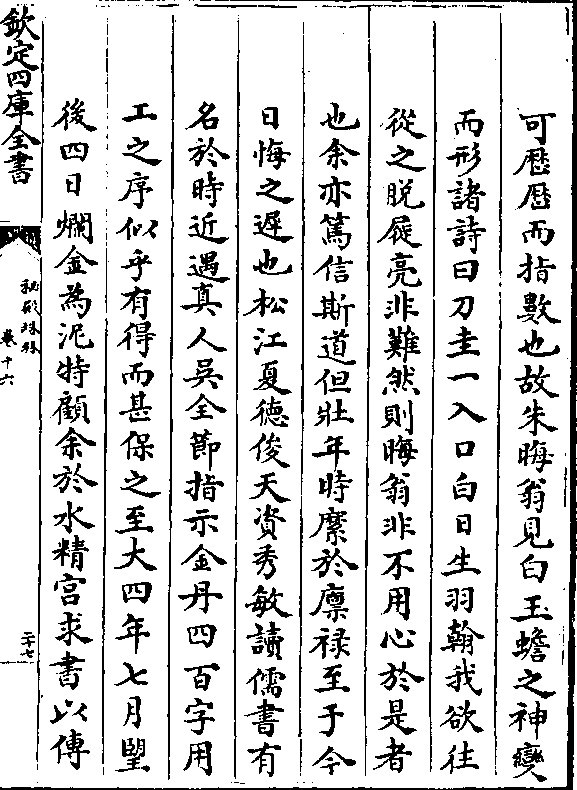 可歴歴而指數也故朱晦翁見白玉蟾之神變
而形諸詩曰刀圭一入口白日生羽翰我欲往
從之脱屣亮非難然則晦翁非不用心於是者
也余亦篤信斯道但壯年時縻於廪禄至于今
日悔之遲也松江夏德俊天資秀敏讀儒書有
名於時近遇真人吳全節指示金丹四百字用
工之序似乎有得而甚保之至大四年七月朢
後四日爛金為泥特顧余於水精宫求書以傳
欽定四庫全書
秘殿珠林
卷十六
二十七